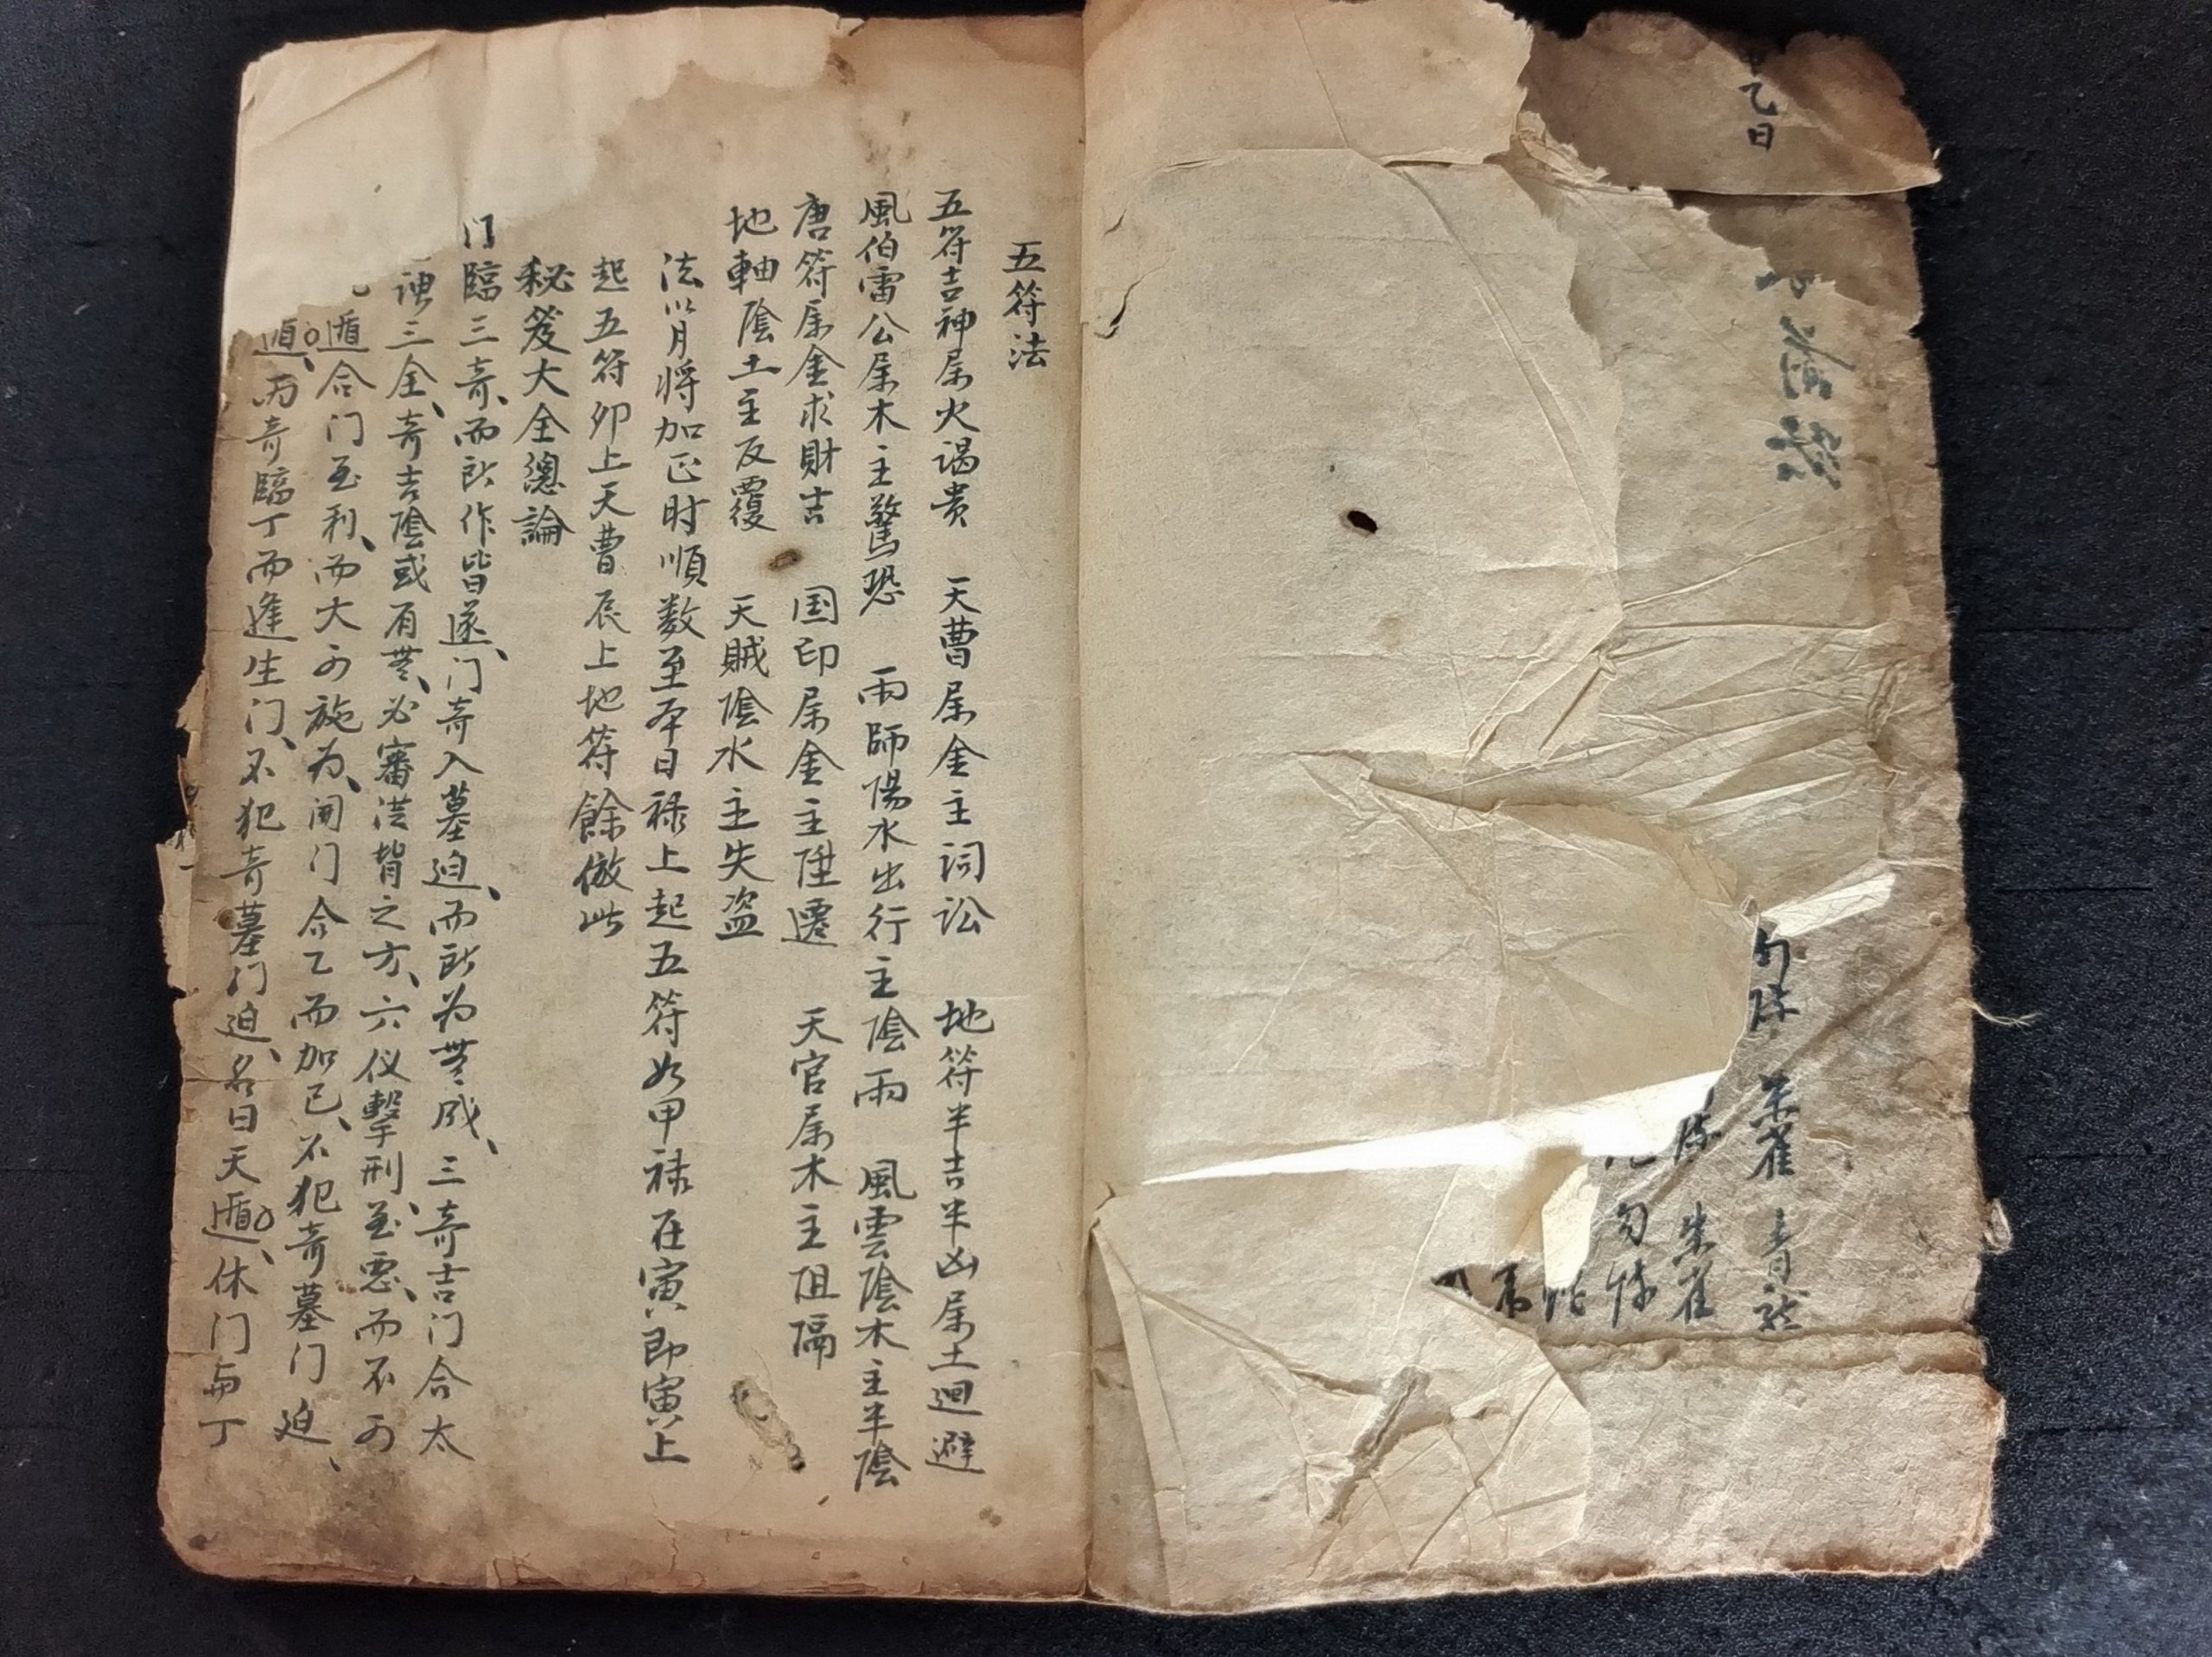 乙日
勾陳 朱雀 青龍
朱雀
勾陳
五符法
五符吉神属火謁贵 天曹属金主词讼 地符半吉半凶属土迴避
風伯雷公属木主驚恐 雨師陽水出行主陰雨 風雲陰木主半陰
唐符属金求財吉 国印属金主陞遷 天官属木主阻隔
地軸陰土主反覆 天賊陰水主失盗
法以月将加正时順数至本日禄上起五符如甲禄在寅即寅上
起五符卯上天曹辰上地符餘倣此
秘笈大全總論
门臨三奇、而所作皆遂、门奇入墓迫、而所为無成、三奇吉门合太
三全、奇吉陰或有無、必審洪背之方、六仪擊刑至悪、而不可
遁合门至利、而大可施为、開门合乙而加己、不犯奇墓门迫、
遁、丙奇臨丁而逢生门、不犯奇墓门迫、名曰天遁、休门与丁